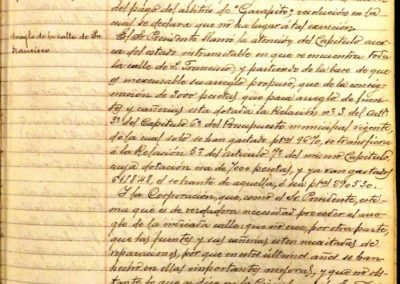 del pago del arbitrio de "Garapito", resolución en la
cual se declara que no ha lugar á tal exención.
Arreglo de la calle de Sn.
Francisco
El Sr. Presidente llamó la atención del Capítulo acer-
ca del estado intransitable en que se encuentra toda
la calle de S. Francisco, y partiendo de la base de que
es inexcusable su arreglo propuso, que de la consig-
nación de 3000 pesetas que para arreglo de fuen-
tes y cañerías está dotada la Relación nº 3 del Artº
3º del Capítulo 6º del Presupuesto municipal vigente,
de la cual solo se han gastado ptas 96'70, se transfiera
á la Relación 5ª del artículo 7º del mismo Capítulo,
cuya dotación era de 7000 pesetas, y ya van gastadas
6.184'8, el sobrante de aquella, ó sea ptas
Y la Corporación, que, como el Sr. Presidente, esti-
ma que es de verdadera necesidad proceder al arre-
glo de la indicada calle; que no cree, por otra parte,
que las fuentes y sus cañerías estén necesitadas de
reparaciones, por que en estos últimos años se han
hecho en ellas importantes mejoras, y que no obs-
tante lo que se dice en la